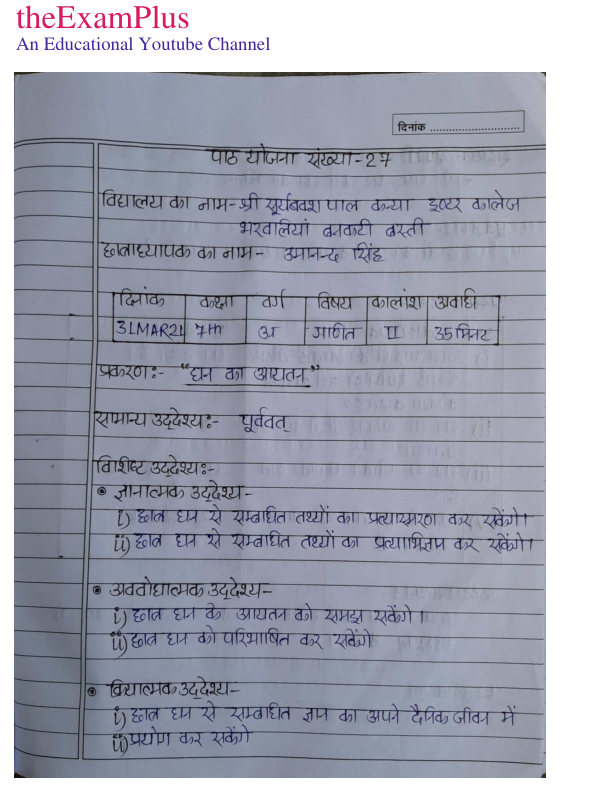 theExamPlus
An Educational Youtube Channel
दिनांक ............................
पाठ योजना संख्या-27
विद्यालय का नाम- श्री सूर्यबक्श पाल कन्या इण्टर कालेज
भरवलियां बनकटी बस्ती
छात्राध्यापक का नाम- उमानन्द सिंह
दिनांक कक्षा वर्ग विषय कालांश अवधि
31MAR21 7th अ गणित II 35मिनट
प्रकरण:- "घन का आयतन"
सामान्य उद्देश्य:- पूर्ववत्
विशिष्ट उद्देश्य:-
• ज्ञानात्मक उद्देश्य-
i) छात्र घन से सम्बन्धित तथ्यों का प्रत्यास्मरण कर सकेंगे।
ii) छात्र घन से सम्बन्धित तथ्यों का प्रत्याभिज्ञान कर सकेंगे।
• अवबोधात्मक उद्देश्य-
i) छात्र घन के आयतन को समझ सकेंगे।
ii) छात्र घन को परिभाषित कर सकेंगे
• क्रियात्मक उद्देश्य-
i) छात्र घन से सम्बन्धित ज्ञान का अपने दैनिक जीवन में
ii) प्रयोग कर सकेंगे